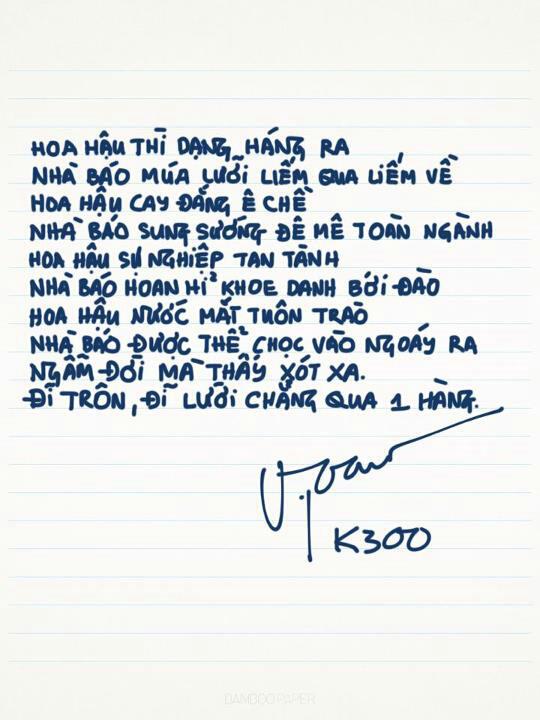 HOA HẬU THÌ DẠNG HÁNG RA
NHÀ BÁO MÚA LƯỠI LIẾM QUA LIẾM VỀ
HOA HẬU CAY ĐẮNG Ê CHỀ
NHÀ BÁO SUNG SƯỚNG ĐÊ MÊ TOÀN NGÀNH
HOA HẬU SỰ NGHIỆP TAN TÀNH
NHÀ BÁO HOAN HỈ KHOE DANH BỚI ĐÀO
HOA HẬU NƯỚC MẮT TUÔN TRÀO
NHÀ BÁO ĐƯỢC THỂ CHỌC VÀO NGOÁY RA
NGẪM ĐỜI MÀ THẤY XÓT XA.
ĐĨ TRÔN, ĐĨ LƯỠI CHẲNG QUA 1 HÀNG.
K300
BAMBOO PAPER